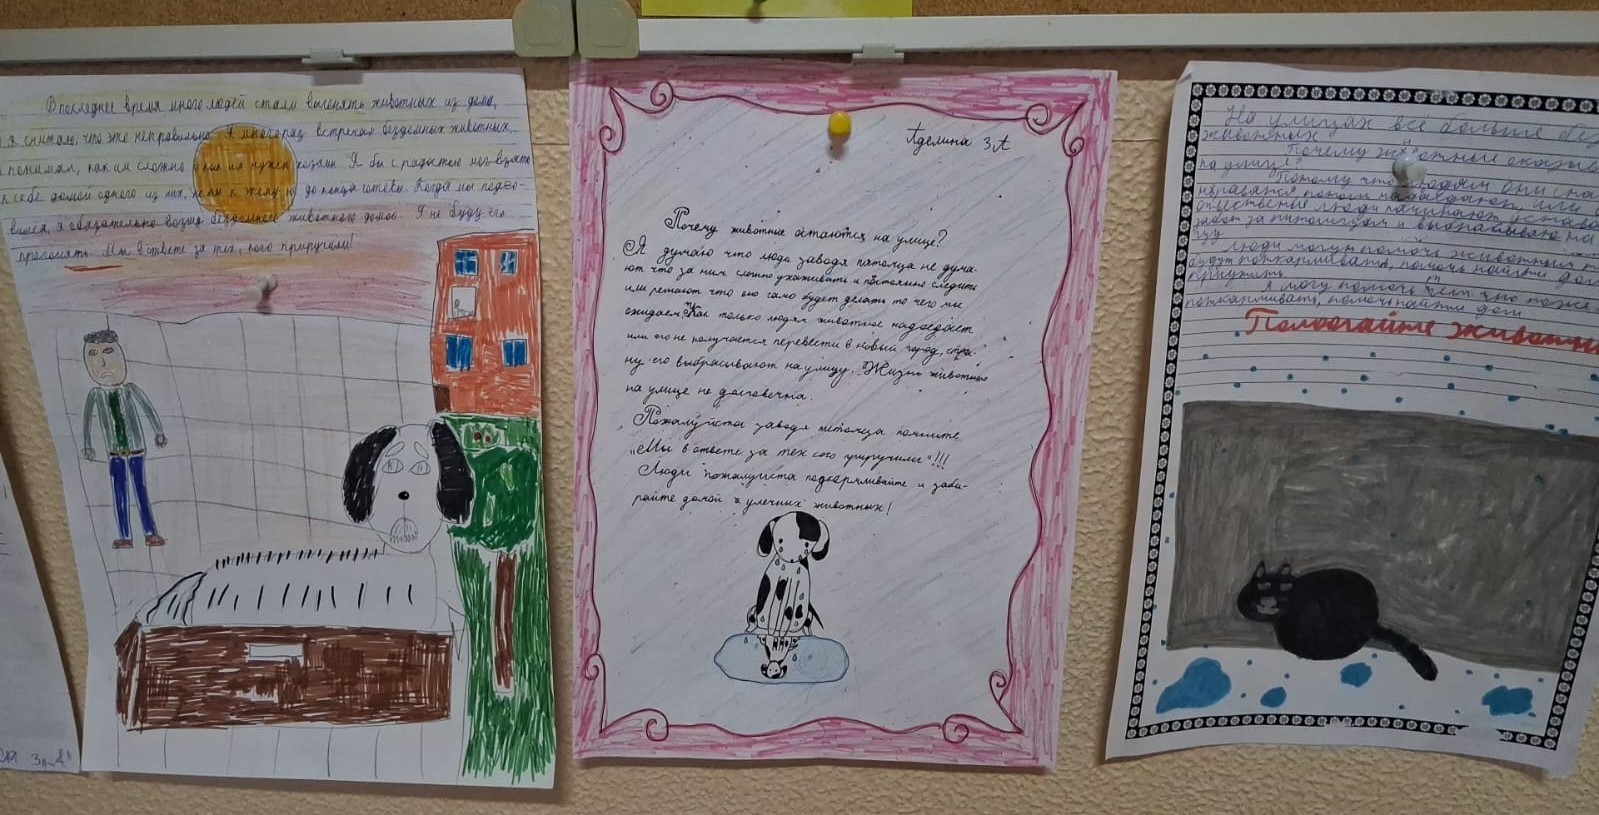 В последнее время много людей стали выгонять животных из дома,
я считаю, что это неправильно. Я много раз встречал бездомных животных,
понимал, как им сложно и как им нужен хозяин. Я бы с радостью мог взять
к себе домой одного из них, но мы к жему не до конца готовы. Когда мы подго-
вимся, я обязательно возьму бездомного животного домой. Я не буду его
прогонять. Мы в ответе за тех, кого приручали!
ся 3 "А"
Аделина 3 А
Почему животные остаются на улице?
Я думаю что люди заводя патомца не дума-
ют что за ним сложно ухаживать и постоянно следить
или решают что он сам будет делать то чего мы
ожидаем. Как только людям животное надоедает
или его не получается перевести в новый город,
ну его выбрасывают на улицу. Жизнь животного
на улице не долговечна.
Пожалуйста заводя питомца помните
"Мы в ответе за тех кого приручили"!!!
Люди пожалуйста подкармливайте и заби-
райте домой уличных животных!
На улицах всё больше без
животных
Почему животные оказыв
на улице?
Потому что людям они сна
нравятся потом надоедают, или
ответственые люди начинают устава
жать за питомцем и выбрасываю на
цу
Люди могут помочь животным
будут покармливать, помочь найти дом
приютить.
Я могу помочь тем что тоже
покармливать, помочь найти дом
Помогайте животны